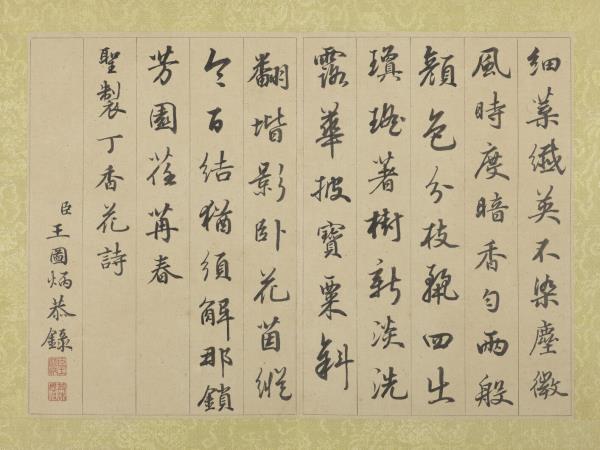 細葉纖英不染塵微
風時度暗香勻兩般
顏色分枝艷四出
瓊瑤著樹新淡洗
露華披寶粟斜
翻堦影臥花茵縱
令百結猶須解那鎖
芳園荏苒春
聖製丁香花詩
臣王圖炳恭錄